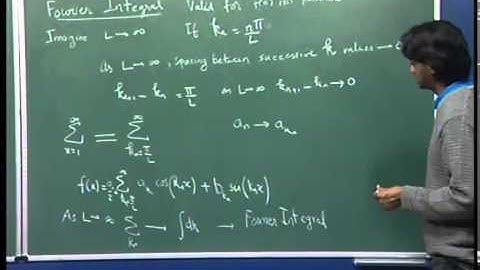 Fourier Integral Valid for
Imagine L→∞ If kₙ = nπ/L
As L→∞, spacing between successive k values →
kₙ₊₁ − kₙ = π/L as L→∞ kₙ₊₁ − kₙ → 0
∞ Σ n=1 = ∞ Σ kₙ=π/L aₙ → a_kₙ
f(x) = Σ cos(kₙx) + b sin(kₙx)
As L→∞ Σ kₙ → ∫dk → Fourier Integral